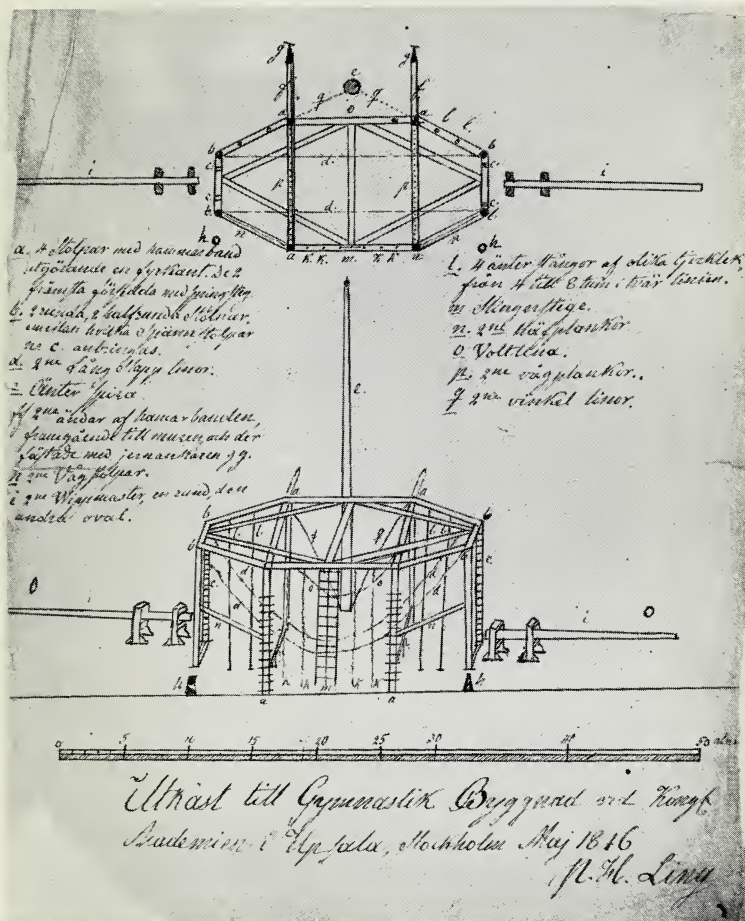 a. 4 Stolpar med hammarband
utgörande en fyrkant. De 2
främsta försedda med springsteg.
b. 2 runda, 2 halfrunda Stolpar,
emellan hvilka Stolpar
c. anbringas.
d. 2ne Lång Slapp linor.
Änter spira.
ff 2ne ändar af hamarbanden,
framgående till muren, och der
fästade med jernankaren gg.
h 2ne Våg stolpar.
i 2ne Wippmaster, en rund, den
andra oval.
l. 4 änter stänger af olika tjocklek,
från 4 till 8 tum i tvär linien.
m Slingerstege.
n. 2ne Häfplankor
o Voltlina.
p. 2ne vågplankor.
q 2ne vinkel linor.
0 5 10 15 20 25 30 40 50 alnar
Utkast till Gymnastik Byggnad vid Kongl.
Academien i Upsala, Stockholm Maj 1816
P. H. Ling